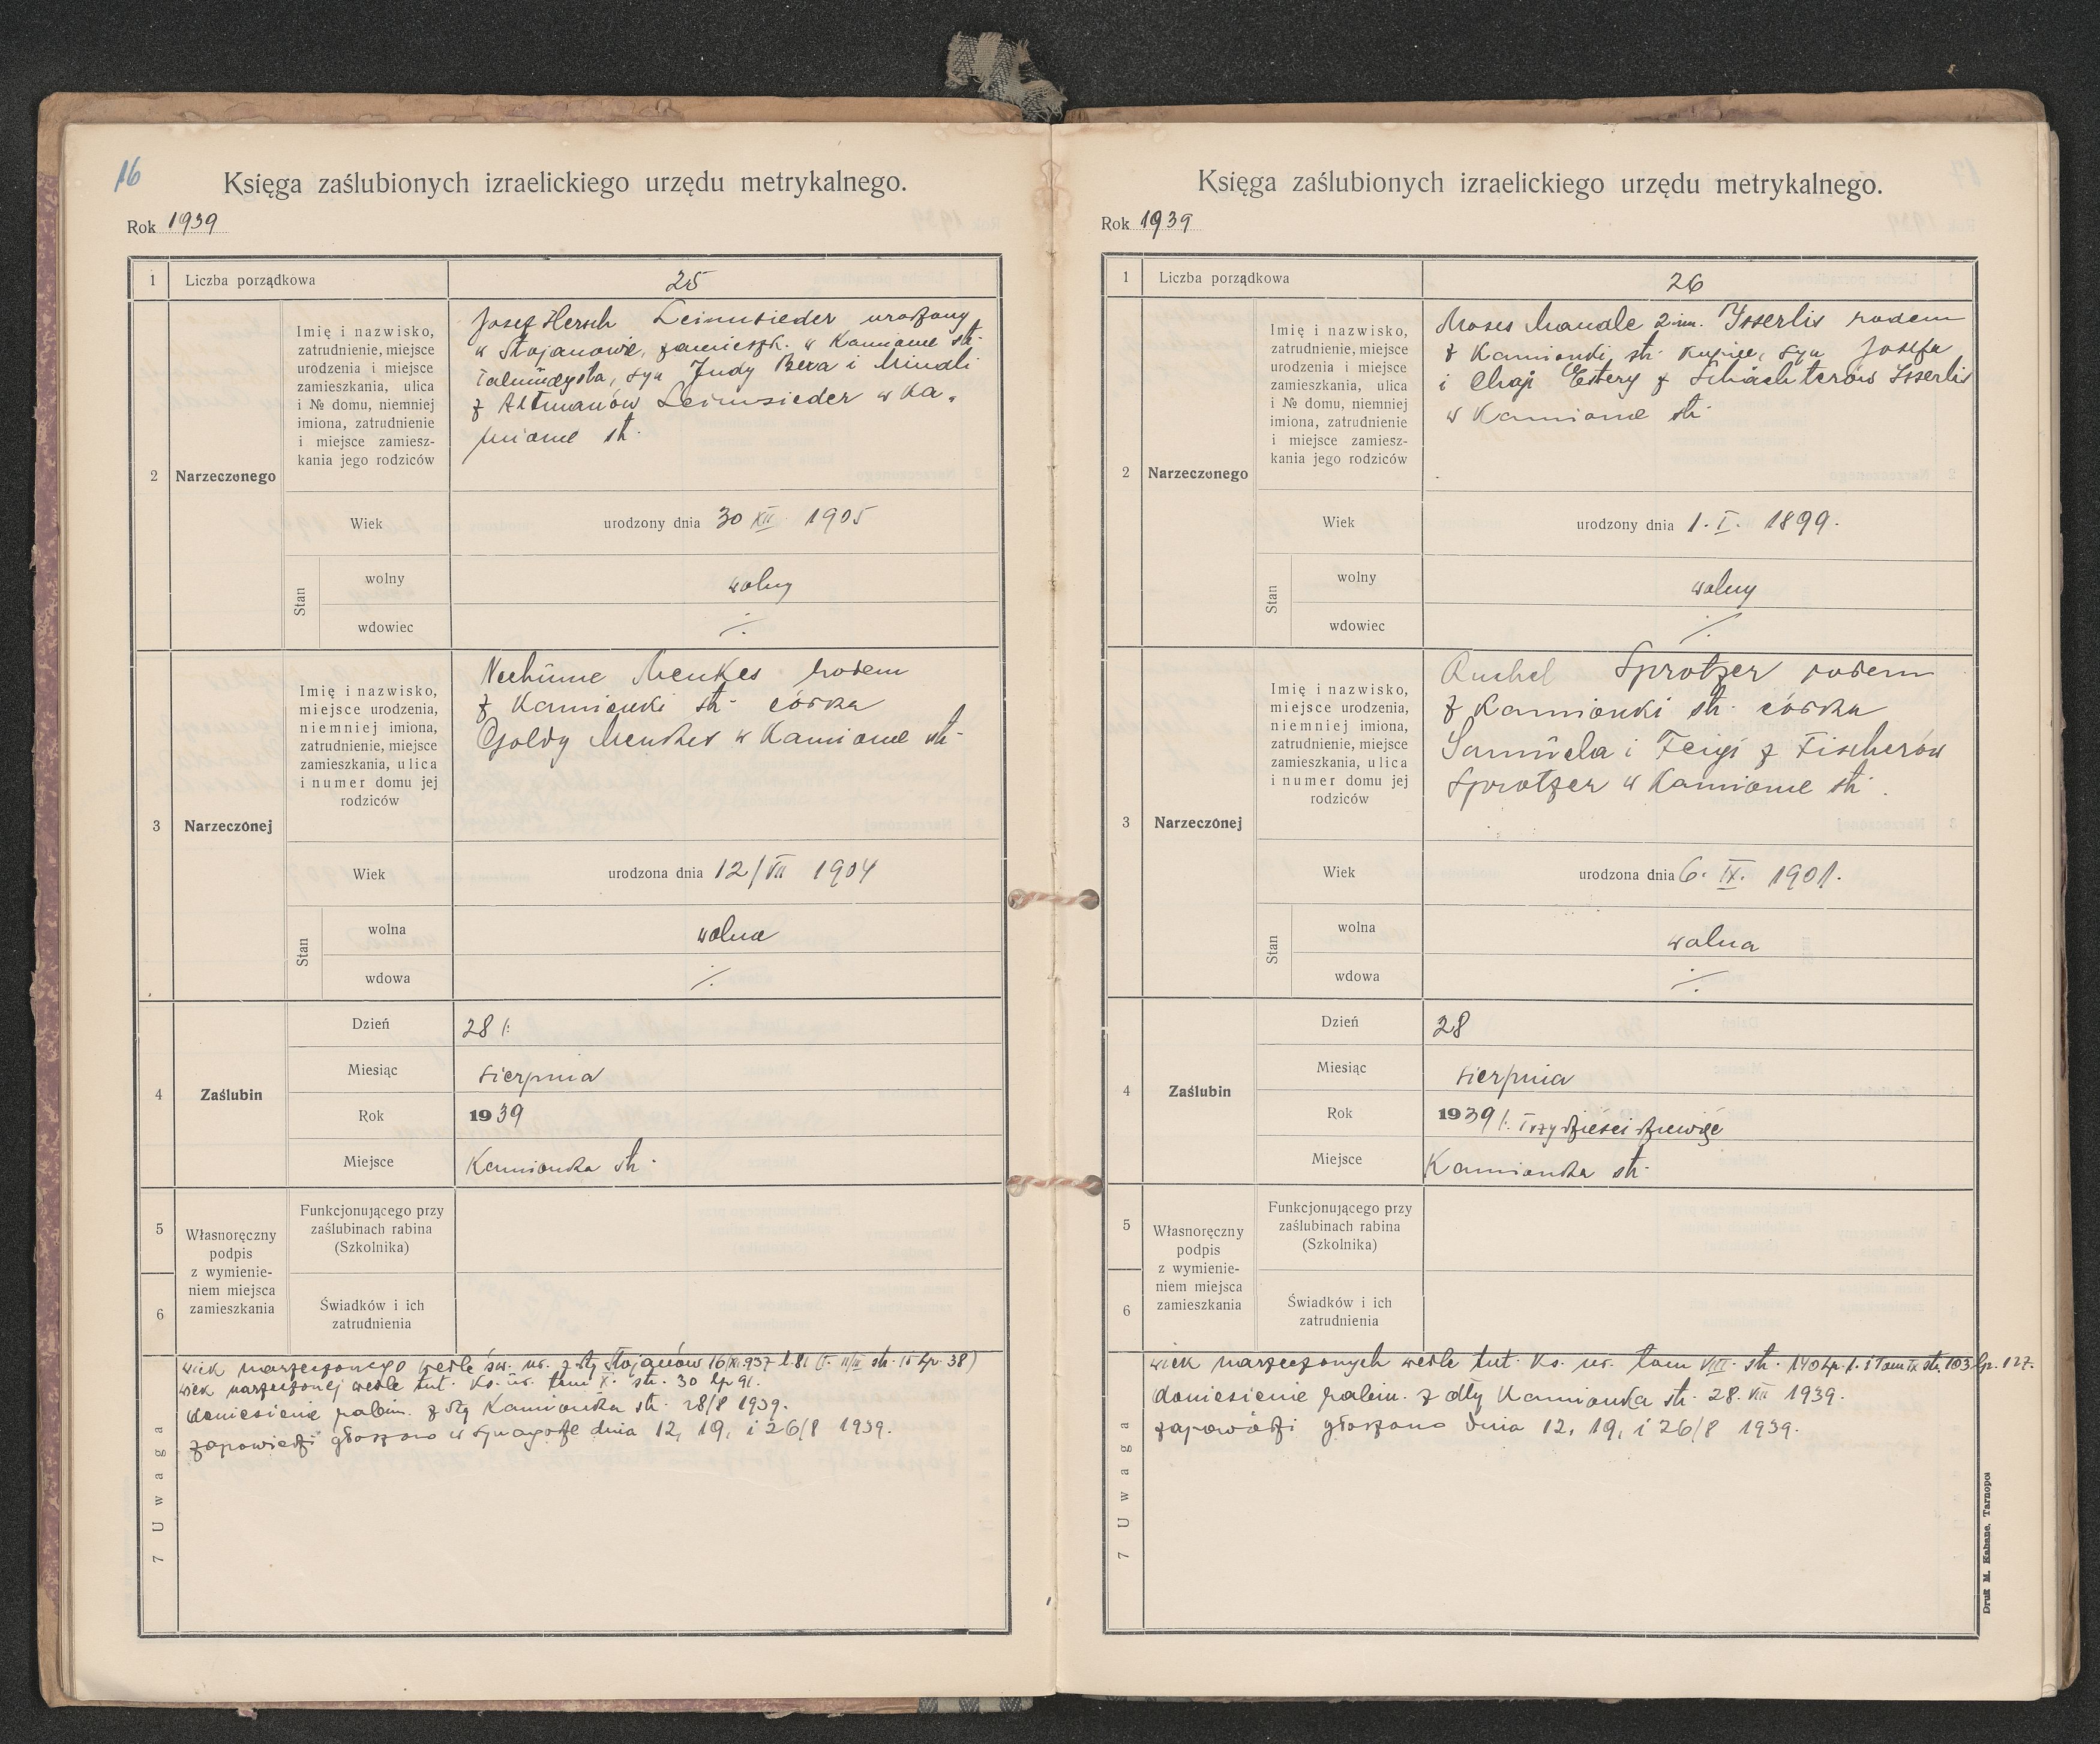 16
Księga zaślubionych izraelickiego urzędu metrykalnego.
Rok 1939
1 Liczba porządkowa 25
2 Narzeczonego
Imię i nazwisko,
zatrudnienie, miejsce
urodzenia i miejsce
zamieszkania, ulica
i № domu, niemniej
imiona, zatrudnienie
i miejsce zamiesz-
kania jego rodziców
Josef Hersch Leimsieder urodzony
w Stojanowie, zamieszk. w Kamionce str.
Talmudysta, syn Judy Bera i Mindli
z Altmanów Leimsieder w Ka-
mionce str.
Wiek urodzony dnia 30 XII 1905
Stan
wolny wolny
wdowiec ·/·
3 Narzeczonej
Imię i nazwisko,
miejsce urodzenia,
niemniej imiona,
zatrudnienie, miejsce
zamieszkania, ulica
i numer domu jej
rodziców
Nechume Menkes rodem
z Kamionki str. córka
Goldy Menkes w Kamionce str.
Wiek urodzona dnia 12/VII 1904
Stan
wolna wolna
wdowa ·/·
4 Zaślubin
Dzień 28 /:
Miesiąc sierpnia
Rok 1939
Miejsce Kamionka str.
5
6
Własnoręczny
podpis
z wymienie-
niem miejsca
zamieszkania
Funkcjonującego przy
zaślubinach rabina
(Szkolnika)
Świadków i ich
zatrudnienia
7 Uwaga
wiek narzeczonego wedle św. ur. z dty Stojanów 16/XI.937 l.81 (T. II/II str. 15 Lp. 38)
wiek narzeczonej wedle tut. Ks. ur. tom X. str. 30 lp 91.
doniesienie rabin. z dty Kamionka str. 28/8 1939.
zapowiedzi głoszono w synagodze dnia 12, 19, i 26/8 1939.
Księga zaślubionych izraelickiego urzędu metrykalnego.
Rok 1939
1 Liczba porządkowa 26
2 Narzeczonego
Imię i nazwisko,
zatrudnienie, miejsce
urodzenia i miejsce
zamieszkania, ulica
i № domu, niemniej
imiona, zatrudnienie
i miejsce zamiesz-
kania jego rodziców
Moses Mandle 2 im. Isserlis rodem
z Kamionki str. kupiec, syn Josefa
i Chaji Estery z Schächterów Isserlis
w Kamionce str.
Wiek urodzony dnia 1. I. 1899.
Stan
wolny wolny
wdowiec ·/·
3 Narzeczonej
Imię i nazwisko,
miejsce urodzenia,
niemniej imiona,
zatrudnienie, miejsce
zamieszkania, ulica
i numer domu jej
rodziców
Ruchel Sprotzer rodem
z Kamionki str. córka
Samuela i Feigi z Fischerów
Sprotzer w Kamionce str.
Wiek urodzona dnia 6. IX. 1901.
Stan
wolna wolna
wdowa ·/·
4 Zaślubin
Dzień 28
Miesiąc sierpnia
Rok 1939 /: Trzydzieści dziewięć
Miejsce Kamionka str.
5
6
Własnoręczny
podpis
z wymienie-
niem miejsca
zamieszkania
Funkcjonującego przy
zaślubinach rabina
(Szkolnika)
Świadków i ich
zatrudnienia
7 Uwaga
wiek narzeczonych wedle tut. Ks. ur. tom VIII. str. 140 Lp. 1. i Tom IX str. 103 lp. 127.
doniesienie rabin. z dty Kamionka str. 28. VIII 1939.
zapowiedzi głoszono dnia 12, 19, i 26/8 1939.
Druk M. Kahane, Tarnopol